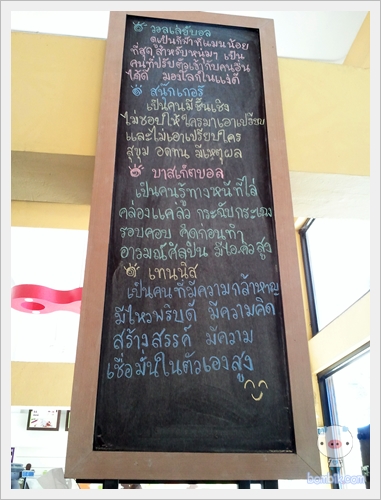 วอลเล่ย์บอล
ดูเป็นกีฬาที่แมนน้อย
ที่สุด สำหรับหนุ่มๆ เป็น
คนที่ปรับตัวเข้ากับคนอื่น
ได้ดี มองโลกในแง่ดี
สนุกเกอร์
เป็นคนมีชั้นเชิง
ไม่ชอบให้ใครมาเอาเปรียบ
และไม่เอาเปรียบใคร
สุขุม อดทน มีเหตุผล
บาสเก็ตบอล
เป็นคนรู้ทางหนีทีไล่
คล่องแคล่ว กระฉับกระเฉง
รอบคอบ คิดก่อนทำ
อารมณ์ศิลปิน มีไอ.คิว สูง
เทนนิส
เป็นคนที่มีความกล้าหาญ
มีไหวพริบดี มีความคิด
สร้างสรรค์ มีความ
เชื่อมั่นในตัวเองสูง